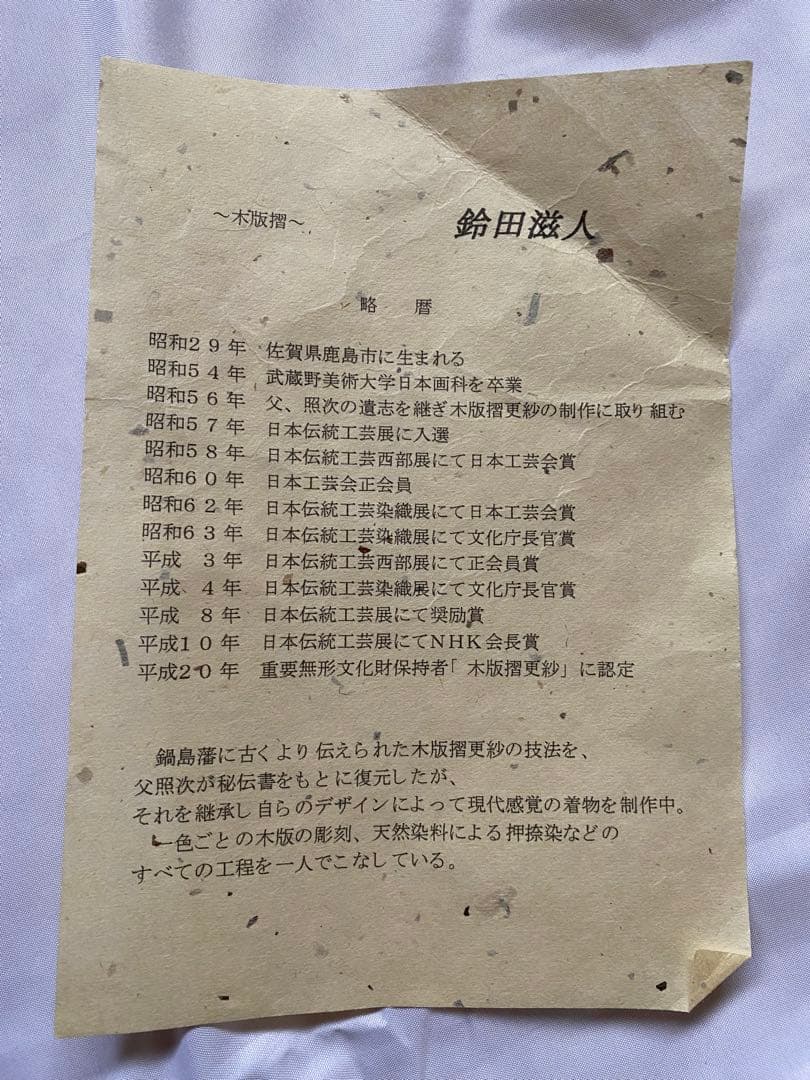 ～木版摺～
鈴田滋人
略　暦
昭和２９年　佐賀県鹿島市に生まれる
昭和５４年　武蔵野美術大学日本画科を卒業
昭和５６年　父、照次の遺志を継ぎ木版摺更紗の制作に取り組む
昭和５７年　日本伝統工芸展に入選
昭和５８年　日本伝統工芸西部展にて日本工芸会賞
昭和６０年　日本工芸会正会員
昭和６２年　日本伝統工芸染織展にて日本工芸会賞
昭和６３年　日本伝統工芸染織展にて文化庁長官賞
平成　３年　日本伝統工芸西部展にて正会員賞
平成　４年　日本伝統工芸染織展にて文化庁長官賞
平成　８年　日本伝統工芸展にて奨励賞
平成１０年　日本伝統工芸展にてＮＨＫ会長賞
平成２０年　重要無形文化財保持者「木版摺更紗」に認定
鍋島藩に古くより伝えられた木版摺更紗の技法を、
父照次が秘伝書をもとに復元したが、
それを継承し自らのデザインによって現代感覚の着物を制作中。
一色ごとの木版の彫刻、天然染料による押捺染などの
すべての工程を一人でこなしている。